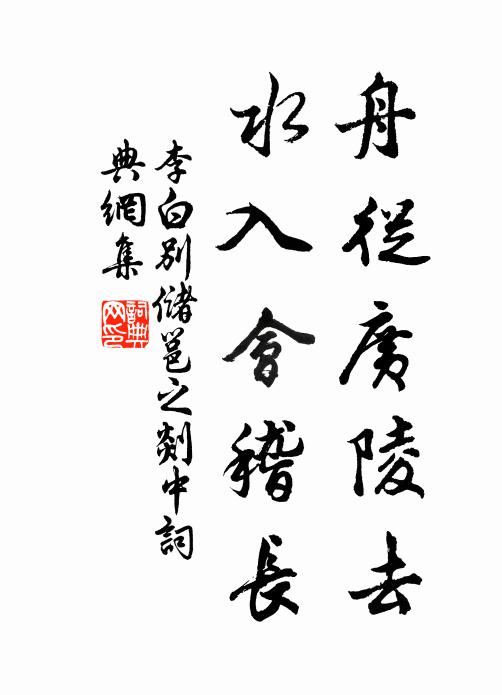 舟從廣陵去
水入會稽長
李白別儲邕之剡中詞
典網集
詞典
网印